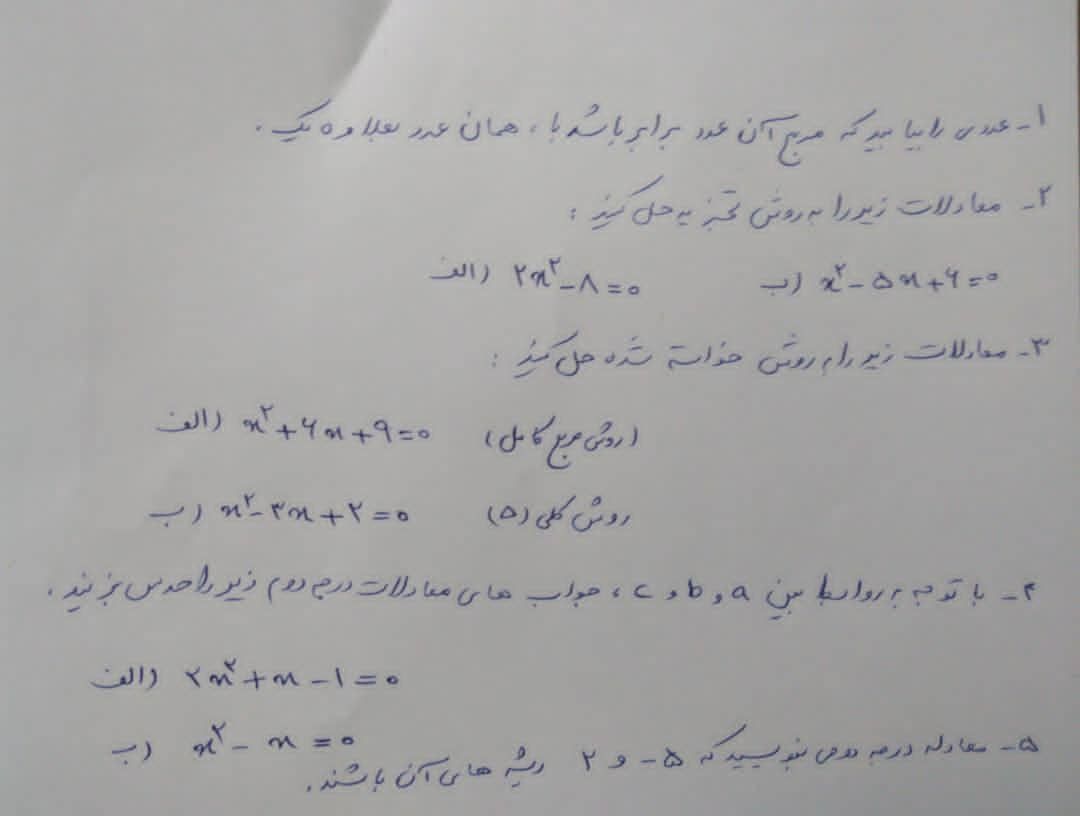 ۱- عددی را بیابید که مربع آن عدد برابر باشد با، همان عدد بعلاوه یک.
۲- معادلات زیر را به روش تجزیه حل کنید:
الف) ۲x²-۸=۰ ب) x²-۵x+۶=۰
۳- معادلات زیر را به روش خواسته شده حل کنید:
الف) x²+۶x+۹=۰ (روش مربع کامل)
ب) x²-۳x+۲=۰ روش کلی (Δ)
۴- با توجه به روابط بین a و b و c، جواب های معادلات درجه دوم زیر را حدس بزنید.
الف) ۲x²+x-۱=۰
ب) x²-x=۰
۵- معادله درجه دومی بنویسید که ۵- و ۲ ریشه های آن باشند.